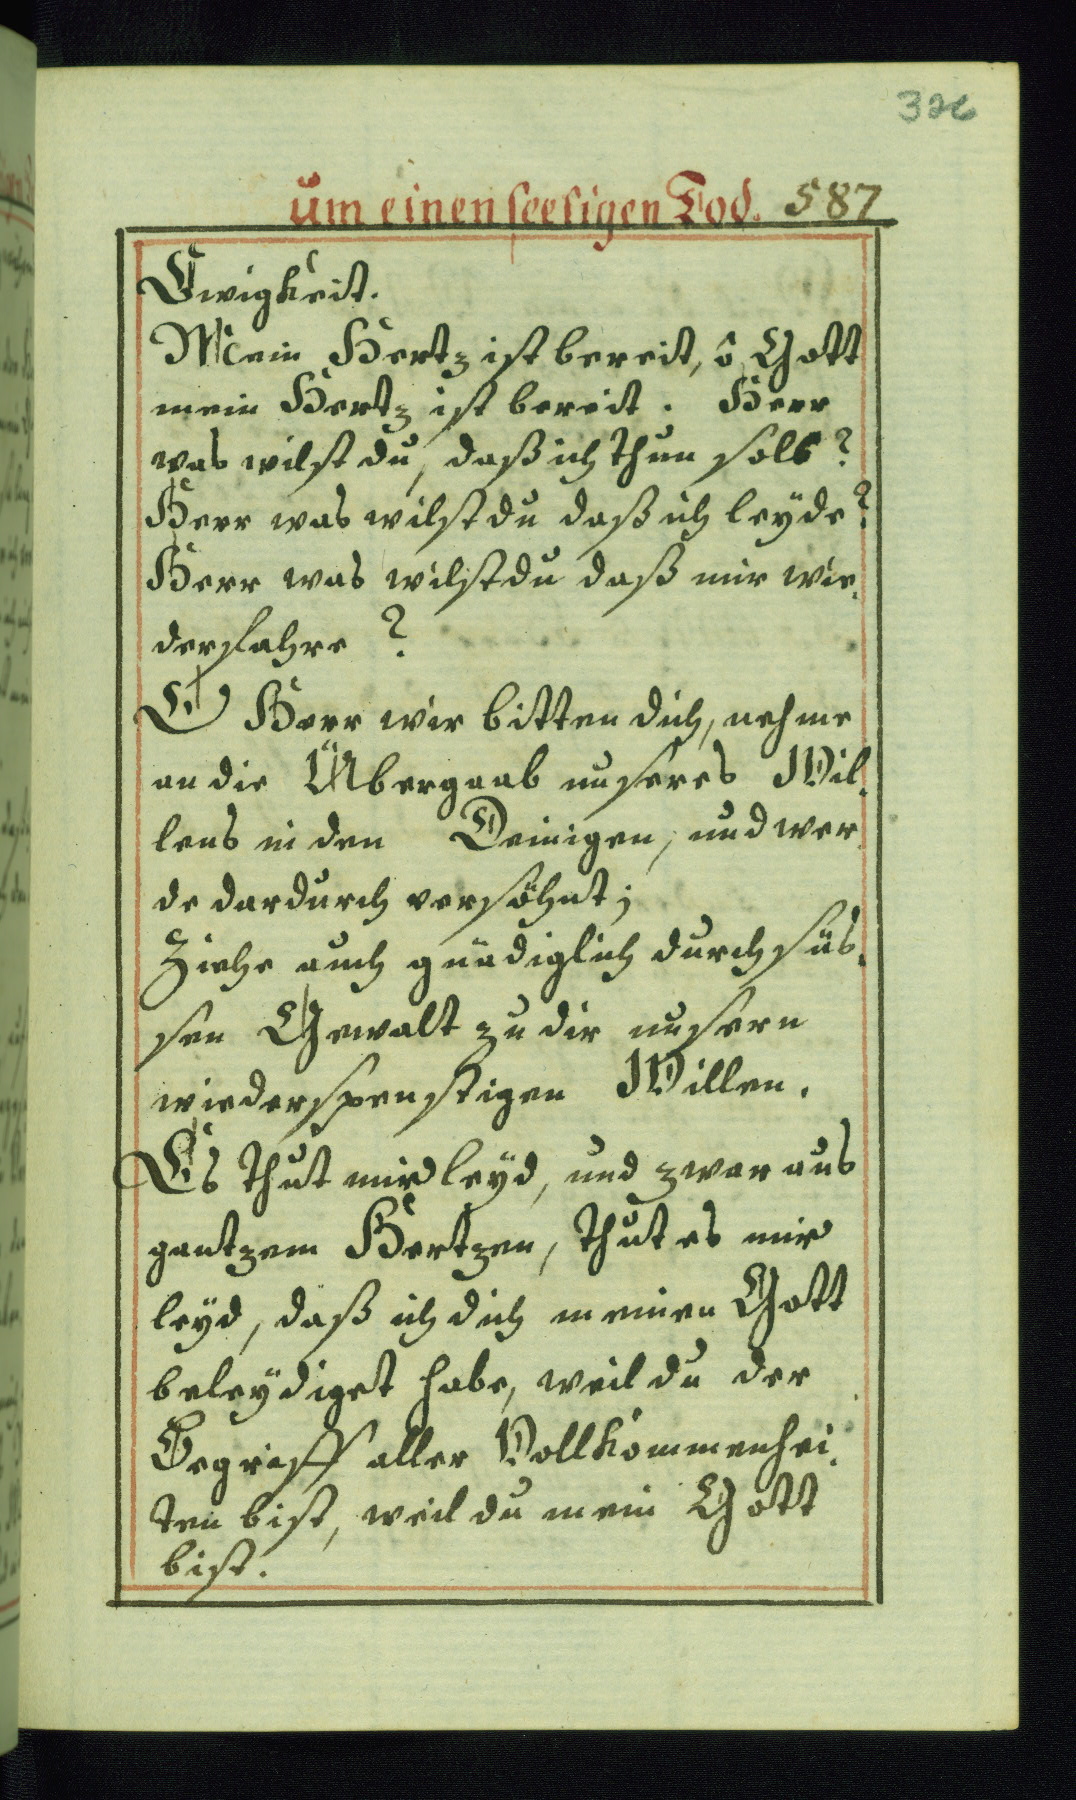 326
um einen seeligen Tod. 587
Ewigkeit.
Mein Hertz ist bereit, ô Gott
mein Hertz ist bereit. Herr
was wilst du, daß ich thun soll?
Herr was wilst du daß ich leÿde?
Herr was wilst du daß mir wie-
derfahre?
O Herr wir bitten dich, nehme
an die Übergaab unseres Wil-
lens in den Deinigen, und wer-
de dardurch versöhnt;
Ziehe auch gnädiglich durch süs-
sen Gewalt zu dir unsern
wiederspenstigen Willen.
Es thut mir leÿd, und zwar aus
gantzem Hertzen, thut es mir
leÿd, daß ich dich meinen Gott
beleÿdiget habe, weil du der
Begriff aller Vollkommenhei-
ten bist, weil du mein Gott
bist.